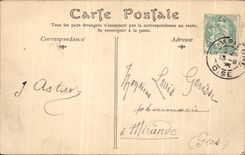 Carte Postale
Tous les pays étrangers n'acceptent pas la correspondance au recto.
Se renseigner à la poste.
Correspondance
Adresse
J Astier
Monsieur Louis
pharmacien
à Mirande
(Gers)
OISE